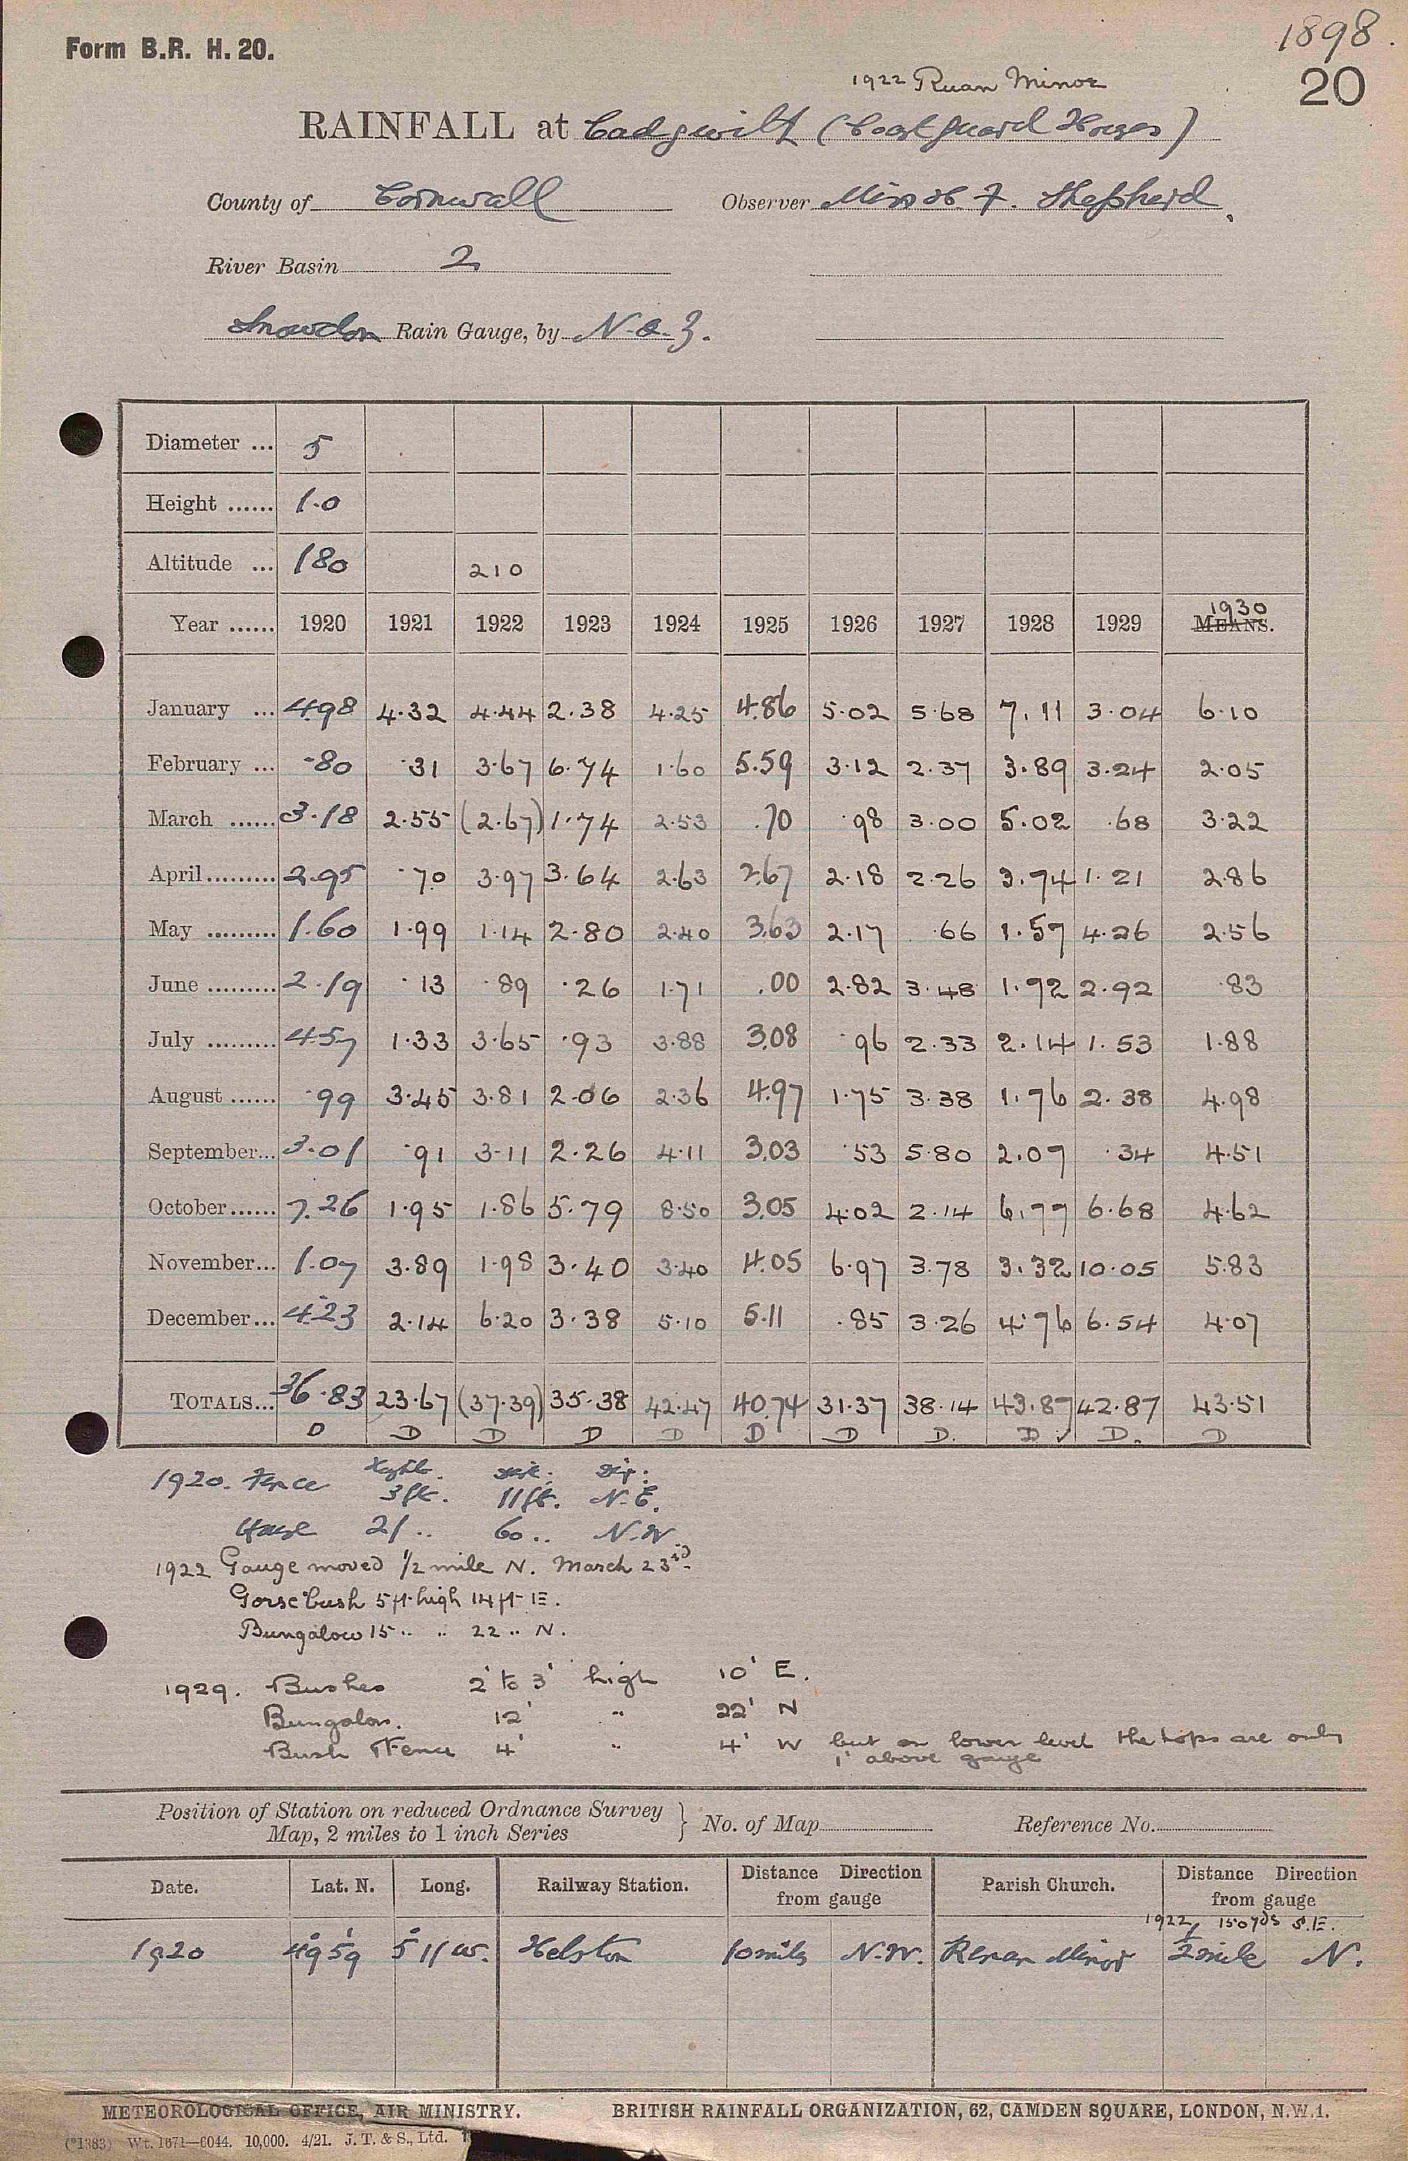 Form B.R. H. 20.
1898.
20
1922 Ruan Minor
RAINFALL at Cadgwith (Coastguard Houses)
County of Cornwall Observer Miss H. F. Shepherd
River Basin 2
Snowdon Rain Gauge, by N. & Z.
Diameter ... 5
Height ...... 1.0
Altitude ... 180 210
Year ...... 1920 1921 1922 1923 1924 1925 1926 1927 1928 1929 1930 MEANS.
January ... 4.98 4.32 4.44 2.38 4.25 4.86 5.02 5.68 7.11 3.04 6.10
February ... .80 .31 3.67 6.74 1.60 5.59 3.12 2.37 3.89 3.24 2.05
March ...... 3.18 2.55 (2.67) 1.74 2.53 .70 .98 3.00 5.02 .68 3.22
April ......... 2.95 .70 3.97 3.64 2.63 2.67 2.18 2.26 3.74 1.21 2.86
May ......... 1.60 1.99 1.14 2.80 2.40 3.63 2.17 .66 1.57 4.26 2.56
June ......... 2.19 .13 .89 .26 1.71 .00 2.82 3.48 1.72 2.92 .83
July ......... 4.57 1.33 3.65 .93 3.88 3.08 .96 2.33 2.14 1.53 1.88
August ...... .99 3.45 3.81 2.06 2.36 4.97 1.75 3.38 1.76 2.38 4.98
September... 3.01 .91 3.11 2.26 4.11 3.03 .53 5.80 2.07 .34 4.51
October...... 7.26 1.95 1.86 5.79 8.50 3.05 4.02 2.14 6.77 6.68 4.62
November... 1.07 3.89 1.98 3.40 3.40 4.05 6.97 3.78 3.32 10.05 5.83
December... 4.23 2.14 6.20 3.38 5.10 5.11 .85 3.26 4.76 6.54 4.07
TOTALS... 36.83 23.67 (37.39) 35.38 42.47 40.74 31.37 38.14 43.87 42.87 43.51
D D D D D D D D. D ✓ D. D
Hght. Dist: Dir:
1920. Fence 3ft. 11ft. N.E.
House 21 .. 60 .. N.W
1922 Gauge moved 1/2 mile N. March 23rd
Gorse bush 5 ft high 14 ft E.
Bungalow 15 .. .. 22 .. N.
1929. Bushes 2' to 3' high 10' E.
Bungalow. 12' " 22' N
Bush Fence 4' " 4' W but on lower level the tops are only
1' above gauge
Position of Station on reduced Ordnance Survey
Map, 2 miles to 1 inch Series } No. of Map Reference No.
Date. Lat. N. Long. Railway Station. Distance Direction from gauge Parish Church. Distance Direction from gauge
1922 150 yds S.E.
1920 49° 59' 5° 11 W. Helston 10 miles N.W. Ruan Minor 1/2 mile N.
METEOROLOGICAL OFFICE, AIR MINISTRY. BRITISH RAINFALL ORGANIZATION, 62, CAMDEN SQUARE, LONDON, N.W.1.
(*1383) Wt. 1671—6044. 10,000. 4/21. J. T. & S., Ltd.